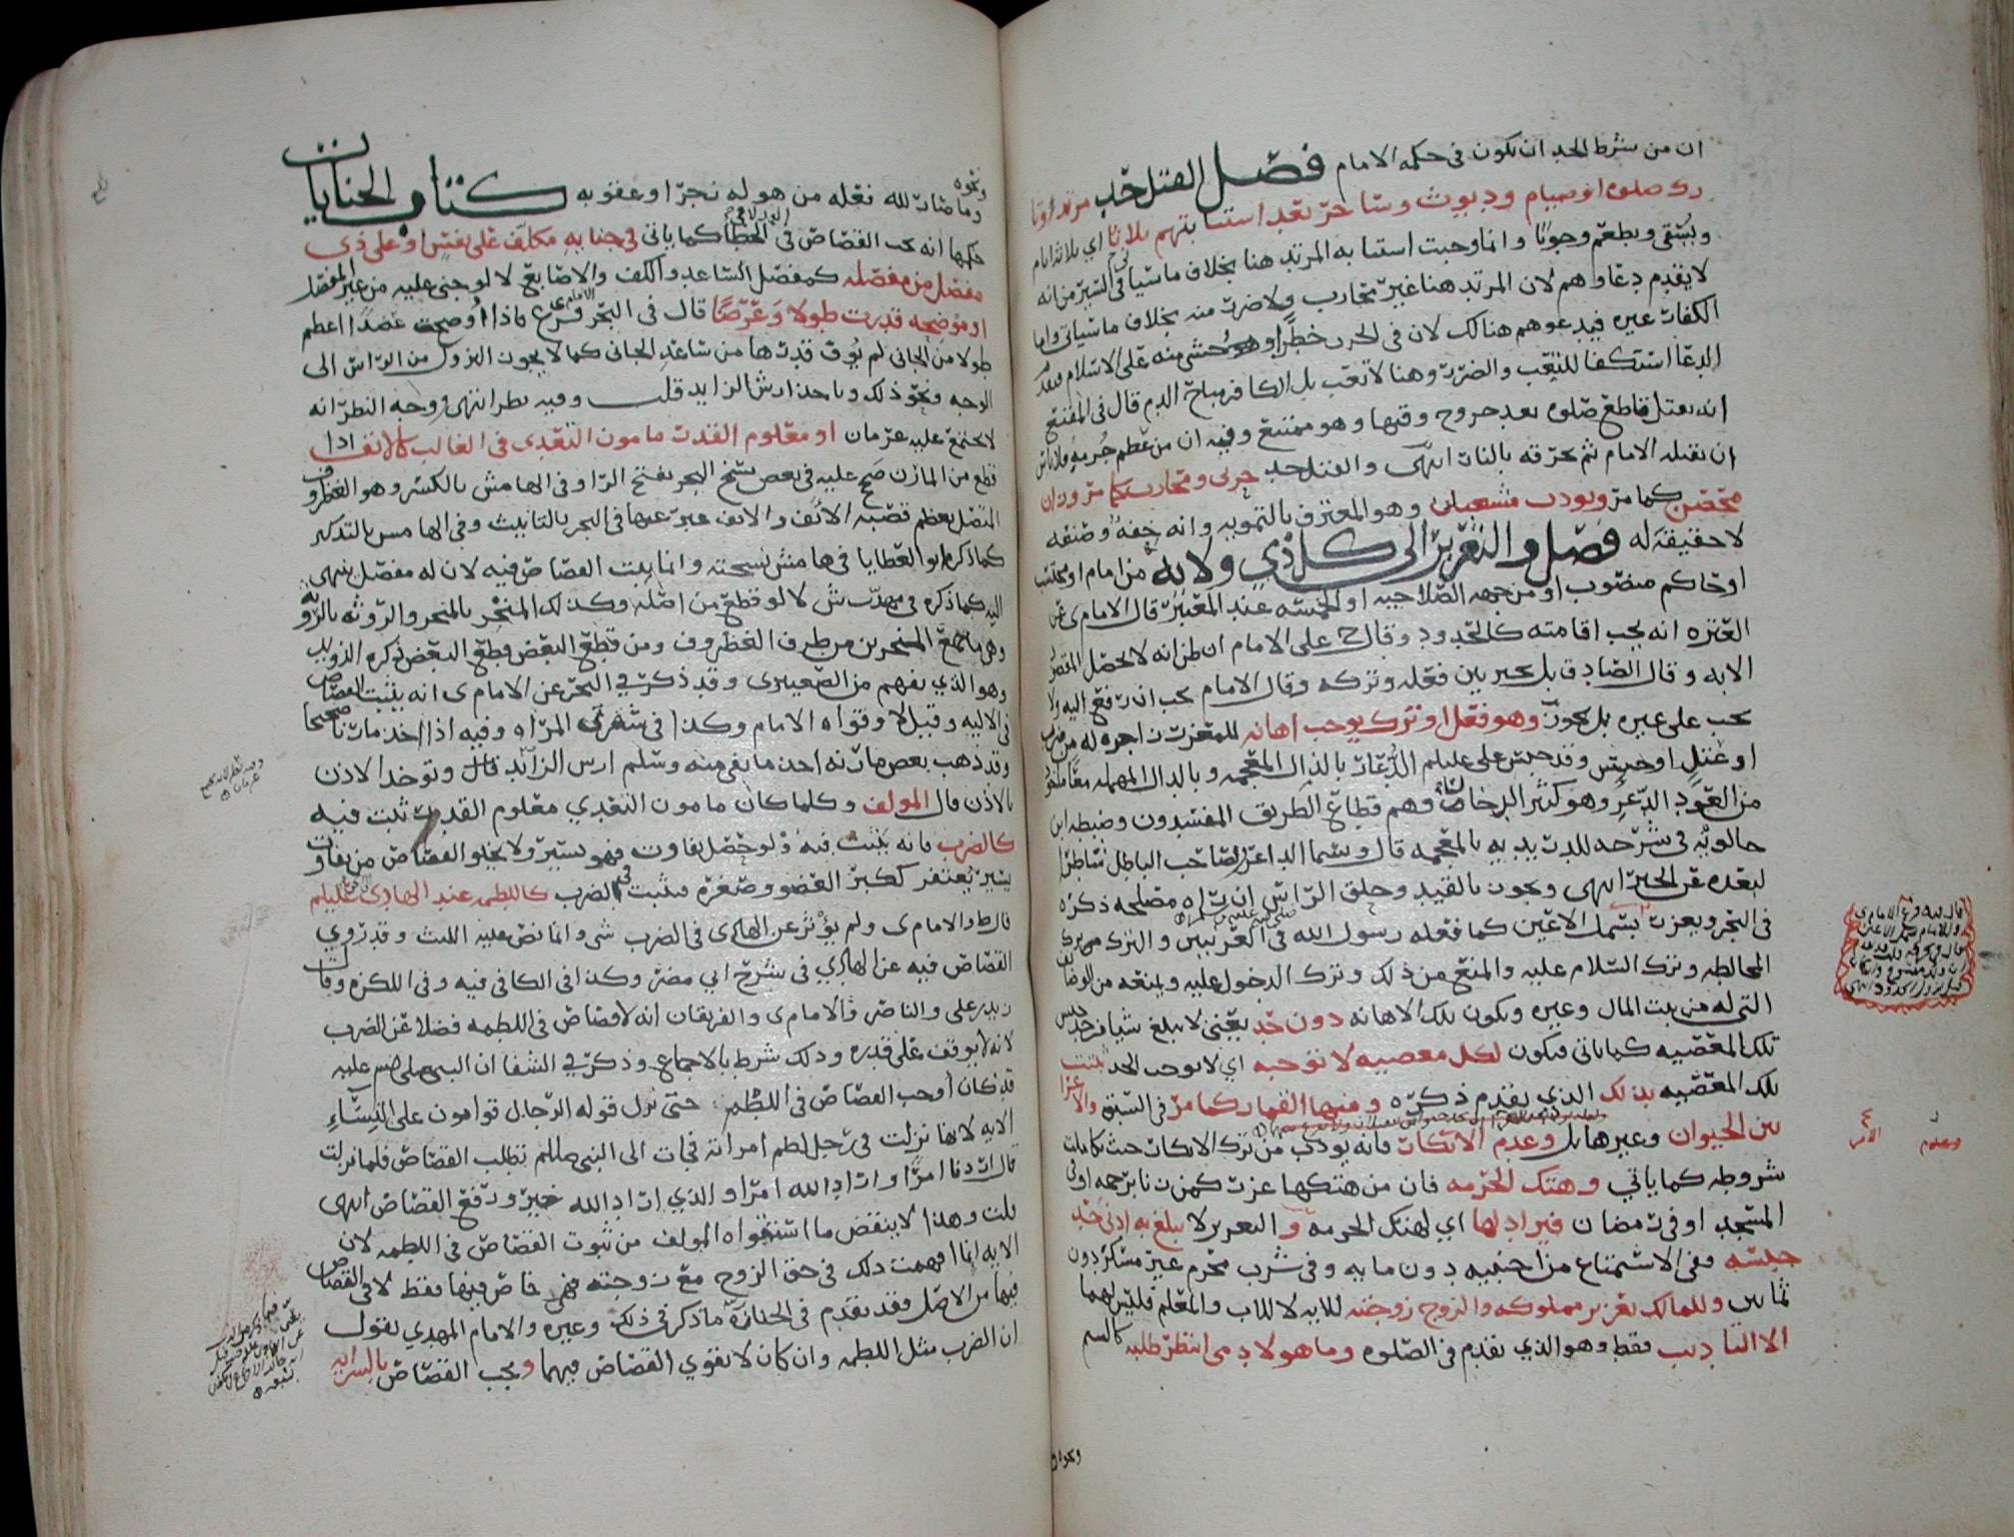 ان من شرط الحد ان يكون في حكمه الامام فصل القتل حد مرتد او تا
رك صلوه او صيام وديوث وساحر بعد استتابتهم ثلاثا اي ثلاثه ايام
ويسقى ويطعم وجوبا وانما وجبت استتابه المرتد هنا بخلاف ما سياتي في السير من انه
لا يقدم دعاوهم لان المرتد هنا غير محارب ولا ضرر منه بخلاف ما سياتي واما
الكفار غيره فيدعوهم هنالك لان في الحرب خطرا وهو يخشى منه على الاسلام
الدعا استكفا للتعب والضرر وهنا لا تعب بل الكافر مباح الدم قال في المقنع
انه يقتل قاطع صلوه بعد خروج وقتها وهو ممتنع وفيه ان من عظم جرمه فلا باس
ان يقتله الامام ثم يحرقه بالنار انتهى والقتل حد حربي ومحارب كما مر وزان
محصن كما مر ويودب مشعبذ وهو المعترف بالتمويه وانه خفه وصنعه
لا حقيقة له فصل والتعزير الى كل ذي ولايه من امام او محتسب
او حاكم منصوب او من جهه الصلاحيه او الخمسه عند المعتبر قال الامام ى عن
العتره انه يجب اقامته كالحدود وقال ح على الامام ان ظن انه لا يحصل المقصود
الا به وقال الصادق بل يخير بين فعله وتركه وقال الامام يجب ان رفع اليه ولا
يجب على غيره بل يجوز وهو فعل او ترك يوجب اهانه للمعزر زاجره له من ضرب
او عتل او حبس وقد حبس علي عليلم الدعار بالذال المعجمه وبالدال المهمله معا
من العود الدعر وهو كثير الدخان وهم قطاع الطريق المفسدون وضبطه ابن
خالويه في شرحه للدريديه بالمعجمه قال وسما الداعر لصاحب الباطل شاطرا
لبعده عن الخير انتهى ويجوز بالقيد وحلق الراس ان راه مصلحه ذكره
في البحر ويعزر بسمل الاعين كما فعله رسول الله في العرنيين والترك من ترك
المخالطه وترك السلام عليه والمنع من ذلك وترك الدخول عليه ويمنعه من الوظائف
التي له من بيت المال وغيره ويكون تلك الاهانه دون حد يعني لا يبلغ شيا من حد جنس
تلك المعصيه كما ياتي فيكون لكل معصيه لا توجبه اي لا توجب الحد ثبتت
تلك المعصيه بذلك الذي تقدم ذكره ومنها القمار كما مر في السبق والاغرا
بين الحيوان وغيرها بل وعدم الانكار فانه يودب من ترك الانكار حيث تكاملت
شروطه كما ياتي وهتك الحرمه فان من هتكها عزر كمن زنا برحمه او في
المسجد او في رمضان فيزاد لها اي لهتك الحرمه والتعزير لا يبلغ به ادنى حد
جنسه ففي الاستمتاع من اجنبيه دون مايه وفي شرب محرم غير مسكر دون
ثمانين وللمالك تعزير مملوكه والزوج زوجته للايه لا للاب والمعلم فليس لهما
الا التاديب فقط وهو الذي تقدم في الصلوه وما هو لادمي انتظر طلبه كالسب
ونحوه
وما صار لله نعله من هو له زجرا وعقوبه كتاب الجنايات
حكمها انه يجب القصاص في الخطا كما ياتي في جنايه مكلف على نفس او على ذي
مفصل من مفصله كمفصل الساعد والكف والاصابع لا لو جني عليه من غير المفصل
او موضحه قدرت طولا وعرضا قال في البحر فرع فاذا اوضحت عضدا اعظم
طولا من الجاني لم يوف قدرها من ساعد الجاني كما لا يجوز النزول من الراس الى
الوجه ونحو ذلك وياخذ ارش الزايد قلت وفيه نظر انتهى ووجه النظر انه
لا يجتمع عليه غرمان او معلوم القدر مامون التعدي في الغالب كالانف اذا
قطع من المارن صح عليه في بعض نسخ البحر بفتح الرا وفي الهامش بالكسر وهو الغضروف
المتصل بعظم قصبه الانف والانف عبر عنها في البحر بالتانيث وفي الهامش بالتذكير
كما ذكره ابو العطايا في هامش نسخته وانما يثبت القصاص فيه لان له مفصل ينتهي
اليه كما ذكره في مهذب ش لا لو قطع من اصله وكذلك المنخر بالمنخر والروثه بالروثه
وهي ما يجمع المنخرين من طرف الغضروف ومن قطع البعض قطع البعض ذكره الدويب
وهو الذي يفهم من الصعيتري وقد ذكر في البحر عن الامام ى انه يثبت القصاص
في الاليه وقيل لا وقواه الامام وكذا في شفري المراه وفيه اذا اخذ مارنا صحيحا
وقد ذهب بعض مارنه اخذ ما بقي منه وسلم ارش الزايد قال وتوخذ الاذن
بالاذن قال المولف وكلما كان مامون التعدي معلوم القدر ثبت فيه
كالضرب فانه يثبت فيه ولو حصل تفاوت فهو يسير ولا يخلو القصاص من تفاوت
يسير يغتفر ككبر العضو وصغره فيثبت في الضرب كاللطمه عند الهادي عليلم
قال ط والامام ى ولم يوثر عن الهادي في الضرب شي وانما نص عليه الليث وقد روي
القصاص فيه عن الهادي في شرح ابي مضر وكذا في الكافي فيه وفي اللكزه وقال
زيد بن علي والناصر والامام ى والفريقان انه لا قصاص في اللطمه فضلا عن الضرب
لانه لا يوقف على قدره وذلك شرط بالاجماع وذكر في الشفا ان النبي صلى الله عليه
قد كان اوجب القصاص في اللطمه حتى نزل قوله الرجال قوامون على النساء
الايه لانها نزلت في رجل لطم امراته فجات الى النبي صللم تطلب القصاص فلما نزلت
قال اردنا امرا واراد الله امرا والذي اراد الله خير ورفع القصاص انتهى
قلت وهذا لا ينقض ما استقواه المولف من ثبوت القصاص في اللطمه لان
الايه انما افهمت ذلك في حق الزوج مع زوجته فهي خاص فيها فقط لا في القصاص
فيها من الاصل فقد تقدم في الجنازه ما ذكر في ذلك وغيره والامام المهدي يقول
ان الضرب مثل اللطمه وان كان لا يقوي القصاص فيهما ويجب القصاص بالسرايه